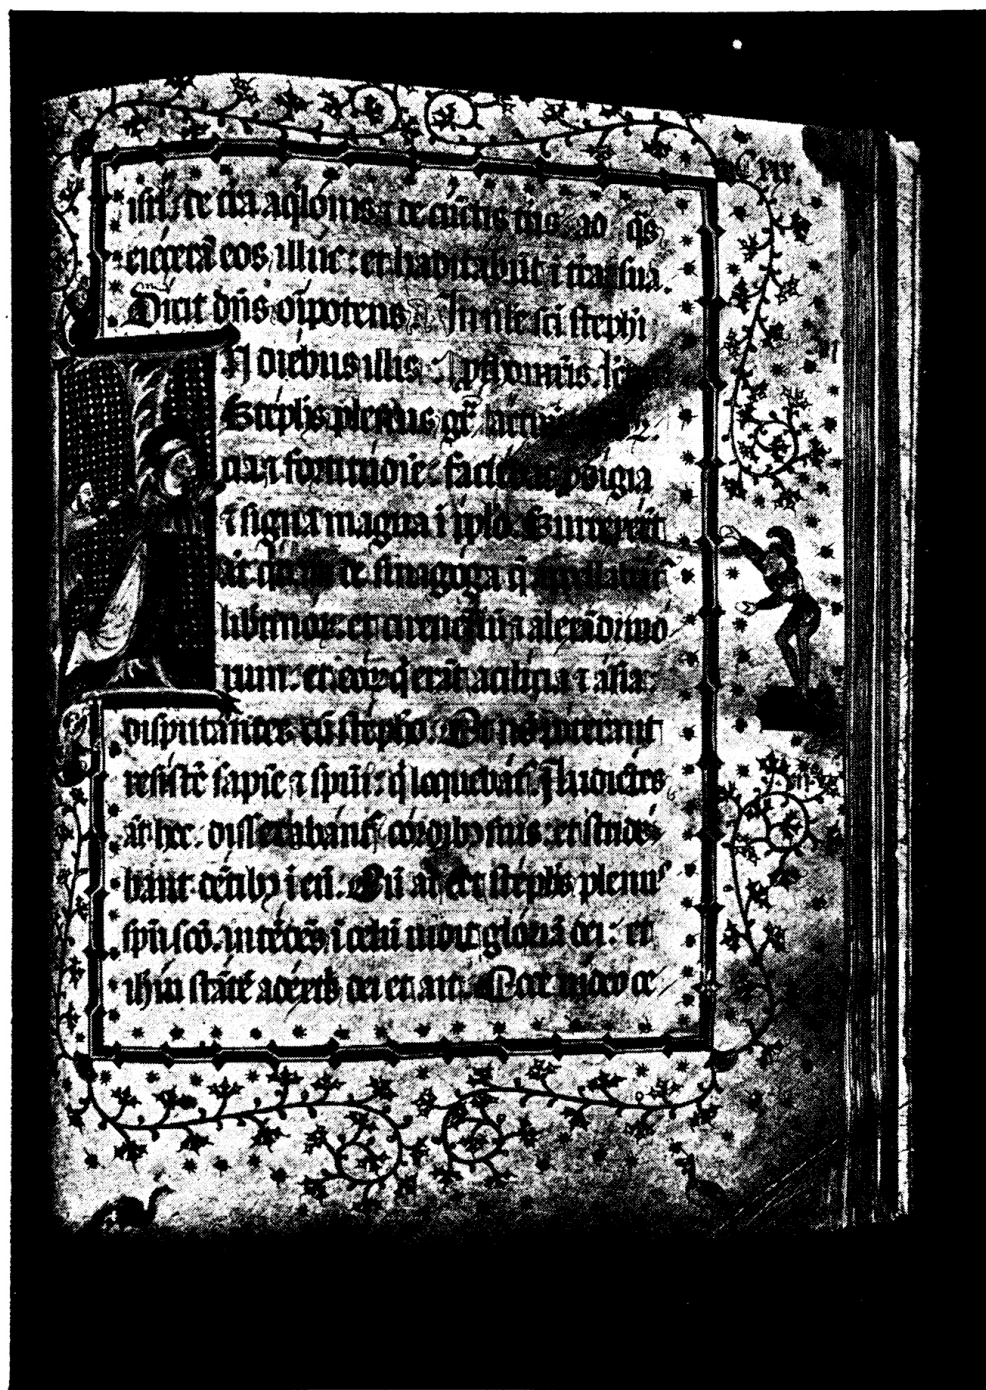 isrł: de t̄ra aq̄lonis ⁊ de cūctis t̄ris: ad q̄s
eiecerā eos illuc: et habitabūt ī t̄ra sua.
Dicit dn̄s om̄ipotens. In nł̄e sc̄i steph̄i
N diebus illis
Steph̄s plenus gr̄a
⁊ fortitudīe: faciebat
⁊ signa magna ī pp̄lo. Surrexer̄t
āt qdā de sinagoga q̄ appellabat͛
libertinoꝝ: et cirenēsiū ⁊ alexādrino
rum: et eoꝝ q̄ erāt a cilicia ⁊ asia:
disputantes cū stephō. Et nō poterant
resistē sapiē ⁊ spūi: q̄ loquebat͛. Audiētes
āt hec: dissecabant͛ cordibꝫ suis: et stride
bant dētibꝫ ī eū. Cū āt eēt steph̄s plenus
spū scō. intēdēs ī celū vidit gloriā dei: et
ih̄m stātē a dextris dei et ait. Ecce video ce